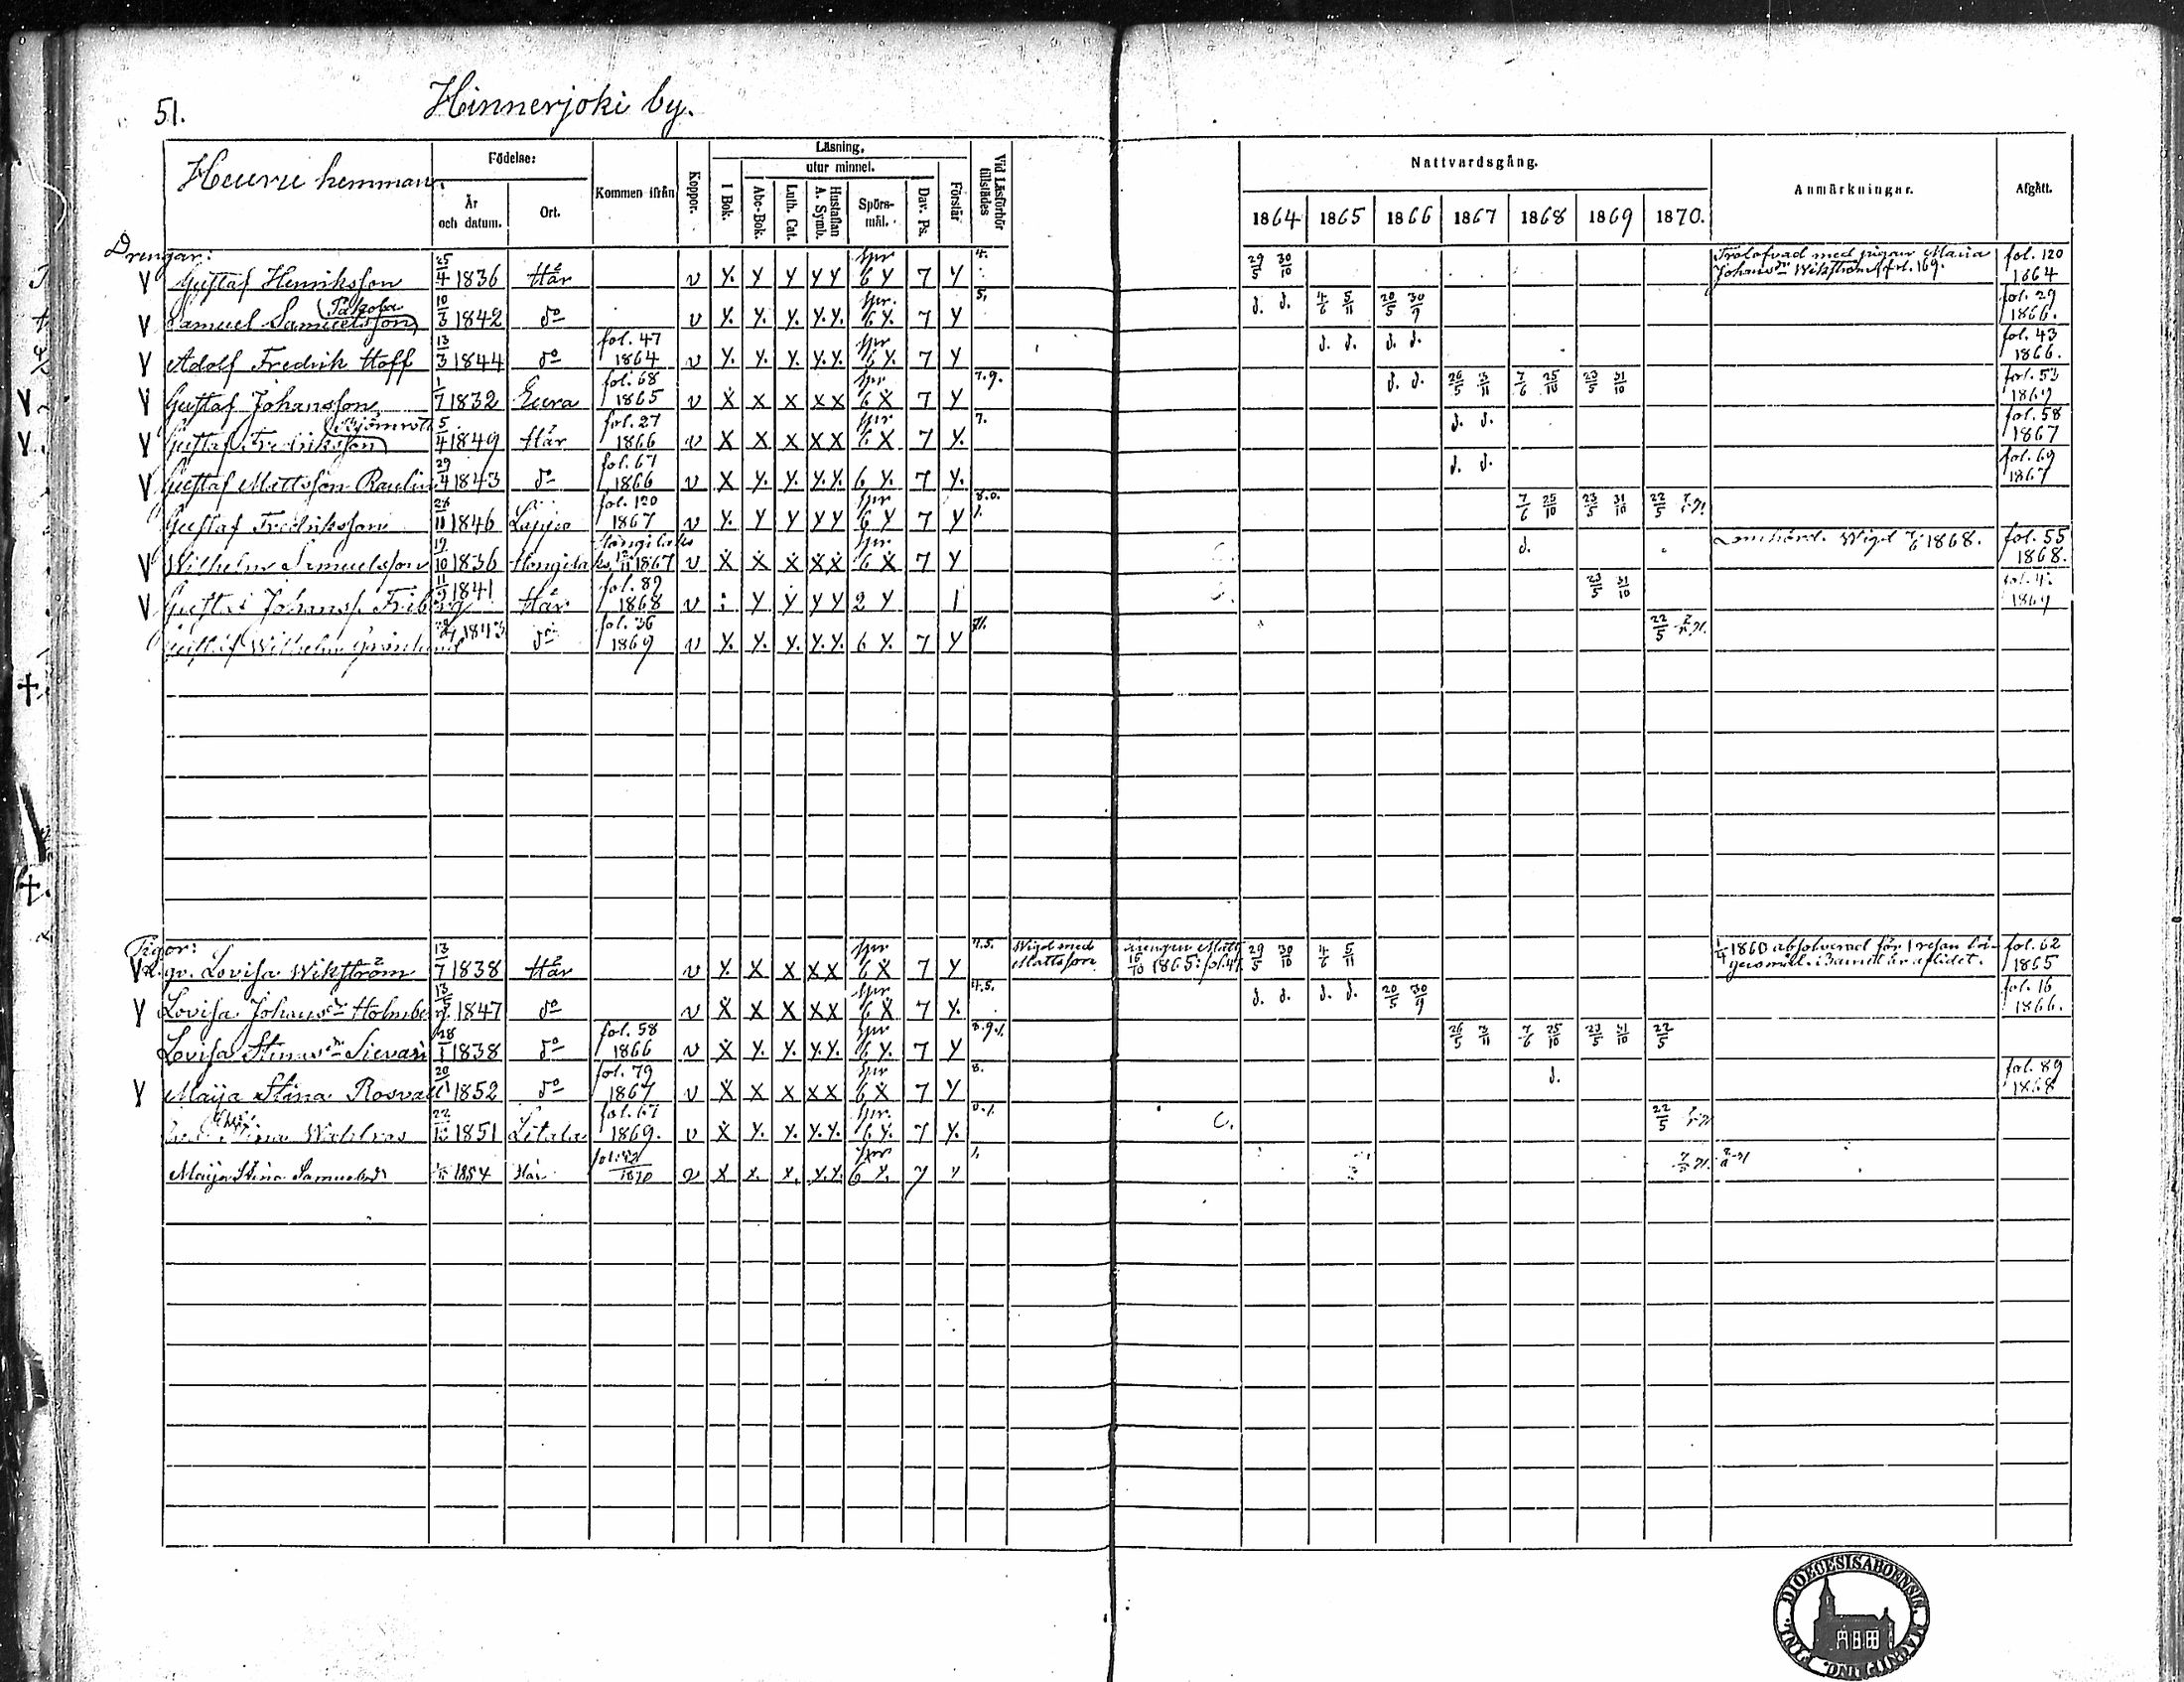 51.
Hinnerjoki by.
Heuru hemman.
Födelse:
År och datum.
Ort.
Kommen ifrån
Koppor.
Läsning,
utur minnet.
I Bok.
Abc-Bok.
Luth. Cat.
Hustaflan A. Symb.
Spörs-mål.
Dav. Ps.
Förstår
Vid Läsförhör tillstädes
Nattvardsgång.
1864 1865 1866 1867 1868 1869 1870.
Anmärkningar.
Afgått.
Drengar:
V Gustaf Henriksson 25/4 1836 Här v Y. Y Y Y Y spr 6 Y 7 Y 4. 29/5 30/10 Trolofvad med pigan Maria Johansdr Wikström fol. 169. fol. 120 1864
V Samuel Samuelsson 10/3 1842 do v Y. Y. Y. Y. Y. spr. 6 Y. 7 Y 5. d. d. 4/6 5/11 20/5 30/9 fol. 29 1866.
V Adolf Fredrik Hoff 13/3 1844 do fol. 47 1864 v Y. Y. Y. Y. Y. spr 6 Y. 7 Y d. d. d. d. fol. 43 1866.
V Gustaf Johansson 1/7 1832 Eura fol. 68 1865 v X X X X X spr 6 X 7 Y 7.9. d. d. 26/5 3/11 7/6 25/10 23/5 31/10 fol. 53 1869
V Gustaf Fredriksson 5/4 1849 Här fol. 27 1866 v X X X X X spr 6 X 7 Y. 7. d. d. fol. 58 1867
V Gustaf Mattsson Raulin 29/4 1843 do fol. 67 1866 v X Y. Y. Y. Y. 6 Y. 7 Y. d. d. fol. 69 1867
Gustaf Fredriksson 28/11 1846 Lappo fol. 120 1867 v Y. Y Y Y Y spr 6 Y 7 Y 8.0. 7/6 25/10 23/5 31/10 22/5
V Wilhelm Samuelsson 19/10 1836 Hongila 1867 v X X X X X spr 6 X 7 Y d. Wigd 7/6 1868. fol. 55 1868.
V Gustaf Johanss. Friberg 11/9 1841 Här fol. 89 1868 v Y Y Y Y 2 Y 23/5 31/10 1869
Gustaf Wilhelm 1843 do fol. 36 1869 v Y. Y. Y. Y. Y. 6 Y. 7 Y 22/5
Pigor:
V gv. Lovisa Wikström 13/7 1838 Här v Y. X X X X spr 6 X 7 Y 4.5. Wigd med drengen Matts Mattsson 15/10 1865: fol. 47. 29/5 30/10 4/6 5/11 1/4 1860 absolverad för 1 resan lä-gersmål. Barnet är aflidet. fol. 62 1865
V Lovisa Johansdr Holmberg 1847 do v X X X X X spr 6 X 7 Y. 4.5. d. d. d. d. 20/5 30/9 fol. 16 1866.
Lovisa Sievari 28/1 1838 do fol. 58 1866 v X Y. Y. Y. Y. spr 6 Y. 7 Y 26/5 3/11 7/6 25/10 23/5 31/10 22/5
V Maija Stina Rosvall 1852 do fol. 79 1867 v X X X X X spr 6 X 7 Y 8. d. fol. 89 1868
Stina 1851 Letala fol. 67 1869. v X Y. Y. Y. Y. spr. 6 Y. 7 Y. 22/5
Maija Stina Samuelsdr 1854 Här 1870 v X X. X. Y. Y. spr 6 Y. 7 Y
DIOECESIS ABOENSIS. MAGNI DUC. FINL.